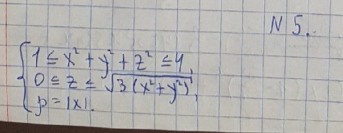 N 5.
1 ≤ x² + y² + z² ≤ 4,
0 ≤ z ≤ √3(x² + y²),
p = |x|.